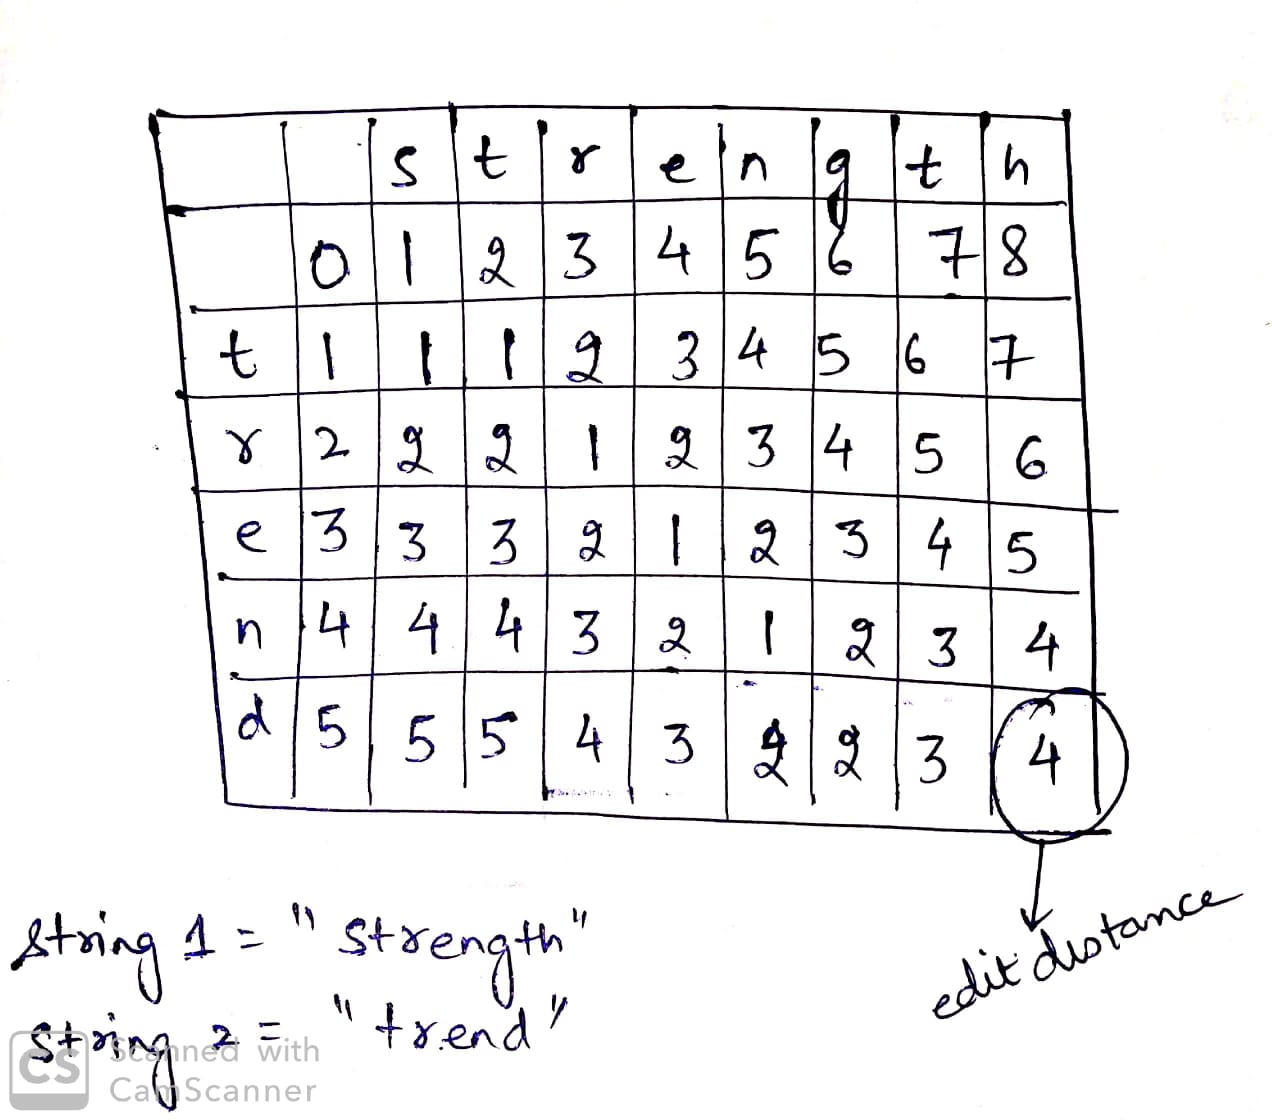 s t r e n g t h
0 1 2 3 4 5 6 7 8
t 1 1 1 2 3 4 5 6 7
r 2 2 2 1 2 3 4 5 6
e 3 3 3 2 1 2 3 4 5
n 4 4 4 3 2 1 2 3 4
d 5 5 5 4 3 2 2 3 4
edit distance
String 1 = "strength"
String 2 = "trend"
CS Scanned with
CamScanner